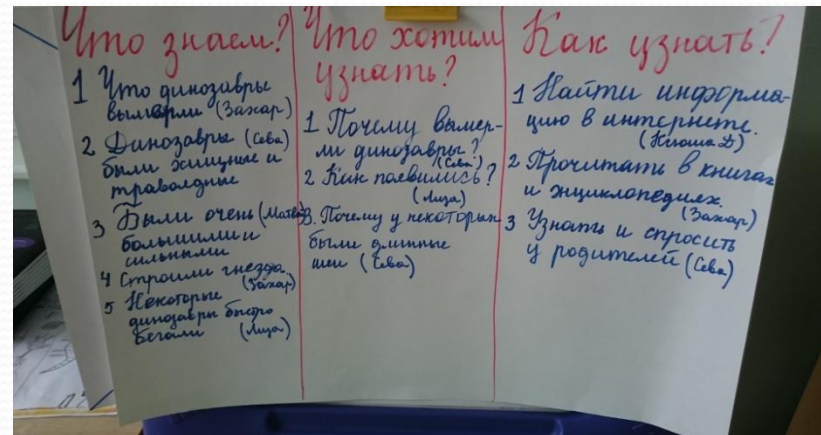 Что знаем?
1 Что динозавры
вымерли (Захар)
2 Динозавры (Сева)
были хищные и
травоядные
3 Были очень (Матвей)
большими и
сильными
4 Строили гнезда.
(Захар)
5 Некоторые
динозавры быстро
бегали (Лиза)
Что хотим
узнать?
1 Почему вымер-
ли динозавры?
(Сева)
2 Как появились?
(Лиза)
3. Почему у некоторых
были длинные
шеи (Сева)
Как узнать?
1 Найти информа-
цию в интернете.
(Ксюша Д)
2 Прочитать в книгах
и энциклопедиях.
(Захар)
3 Узнать и спросить
у родителей (Сева)